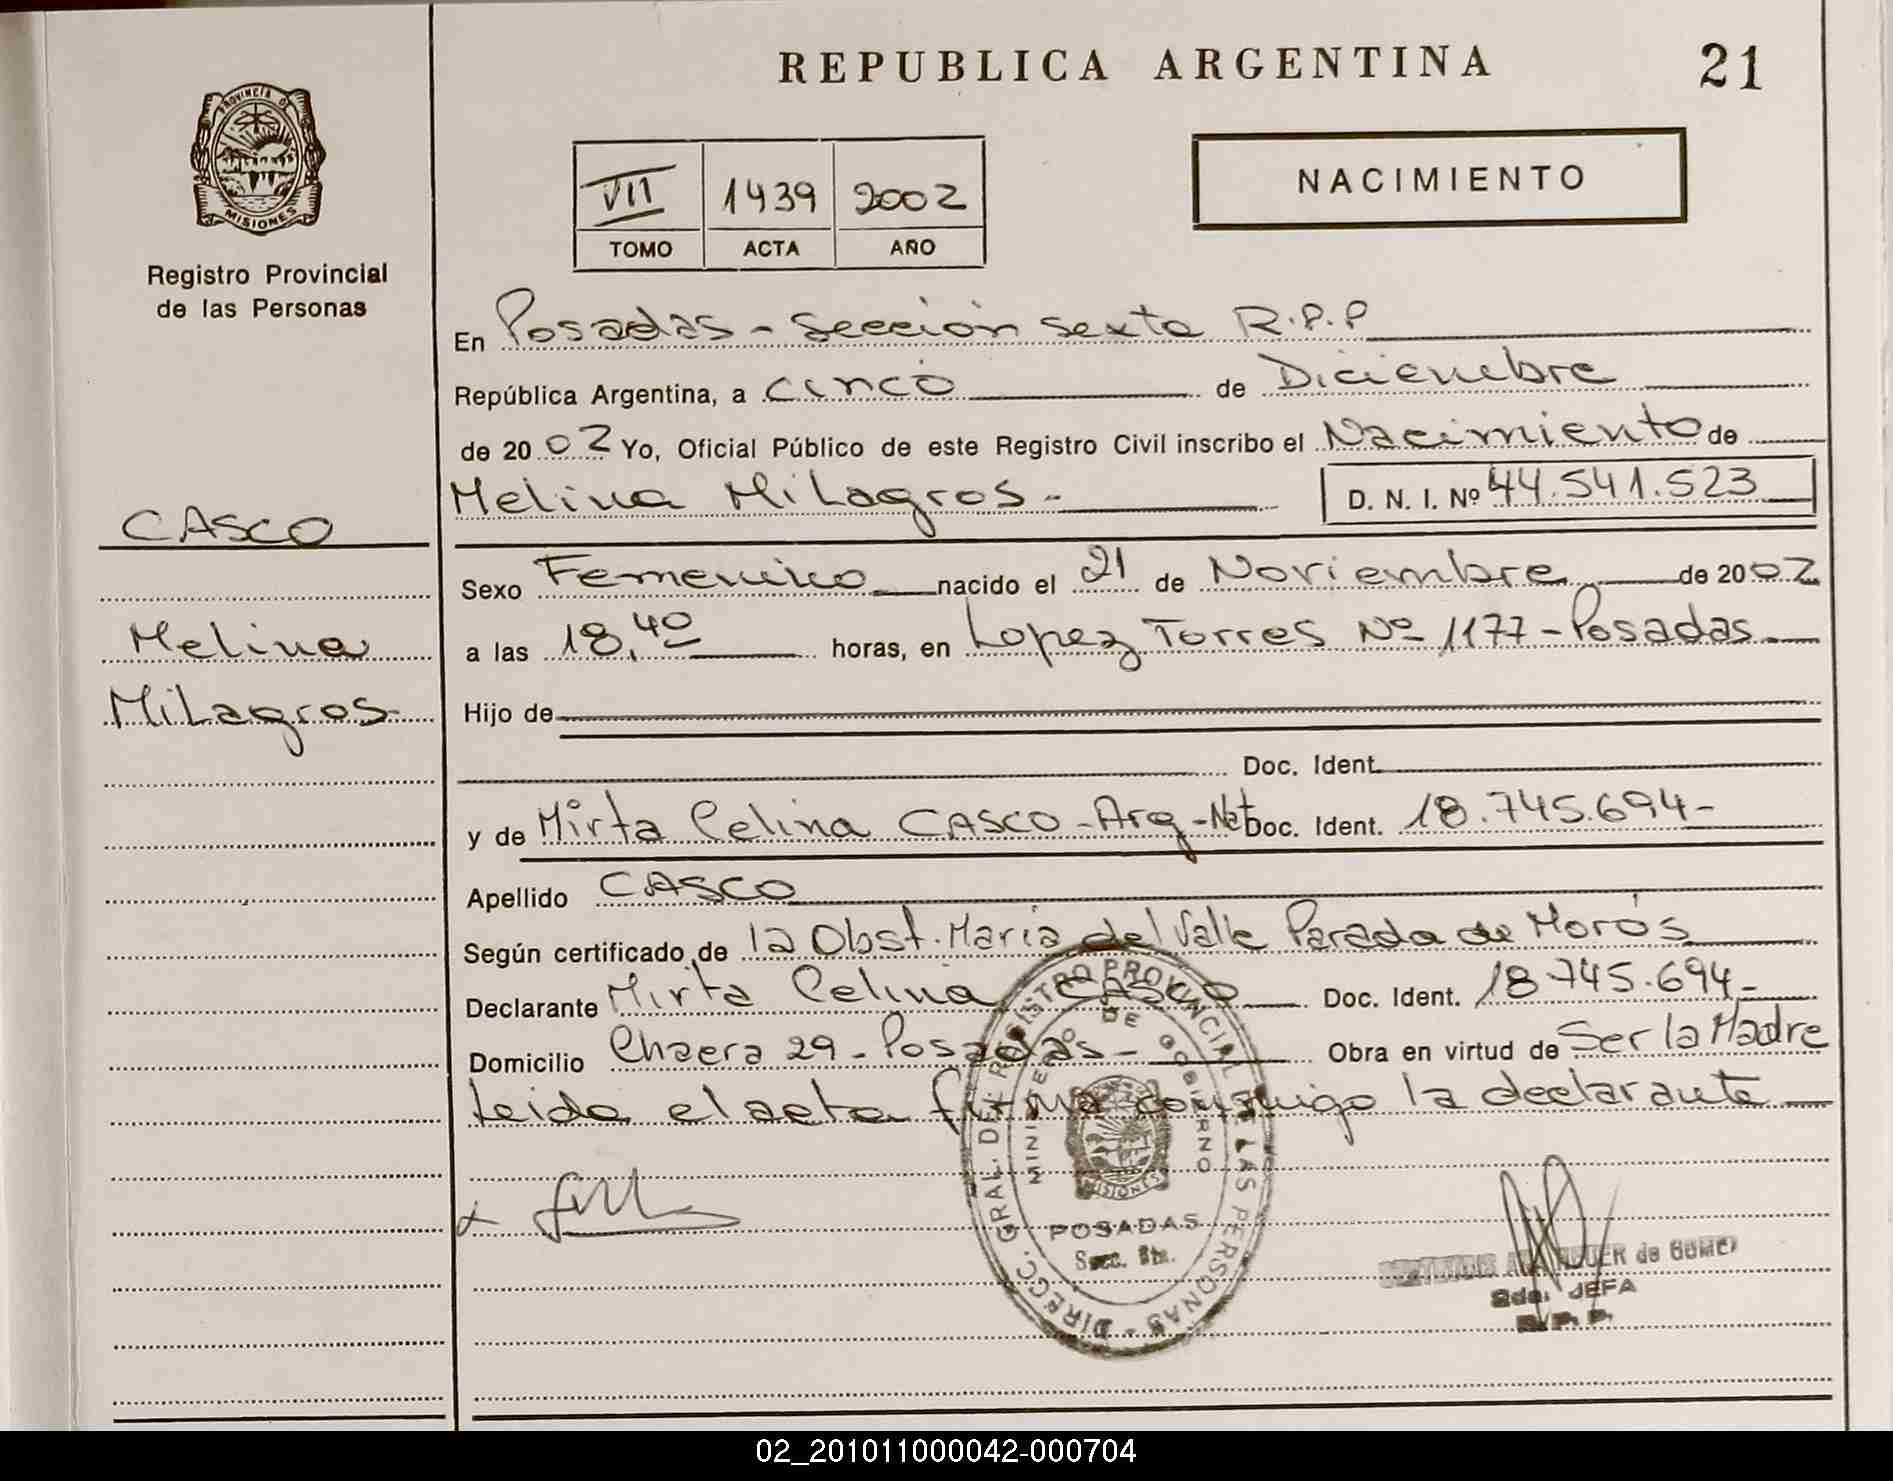 REPUBLICA ARGENTINA
21
PROVINCIA DE
MISIONES
Registro Provincial
de las Personas
VII 1439 2002
TOMO ACTA AÑO
NACIMIENTO
En Posadas - Sección sexta R.P.P
República Argentina, a cinco de Diciembre
de 2002 Yo, Oficial Público de este Registro Civil inscribo el Nacimiento de
Melina Milagros - D. N. I. Nº 44.541.523
CASCO
Melina
Milagros -
Sexo Femenino nacido el 21 de Noviembre de 2002
a las 18,40 horas, en Lopez Torres Nº 1177 - Posadas
Hijo de
Doc. Ident.
y de Mirta Celina CASCO - Arg - Nat Doc. Ident. 18.745.694 -
Apellido CASCO
Según certificado de la Obst. Maria del Valle Parada de Morós
Declarante Mirta Celina CASCO Doc. Ident. 18.745.694 -
Domicilio Chacra 29 - Posadas - Obra en virtud de Ser la Madre
Leida el acta firma conmigo la declarante
DIRECC. GRAL. DEL REGISTRO PROVINCIAL DE LAS PERSONAS -
MINISTERIO DE GOBIERNO
MISIONES
POSADAS
Secc. 6ta.
de
2da. JEFA
R. P. P.
02_201011000042-000704